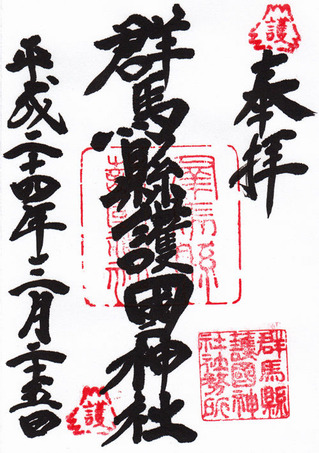 護
奉拝
群馬縣護國神社
群馬縣
護國神
社社務所
群馬縣
護國神社
平成二十四年三月二十五日
護